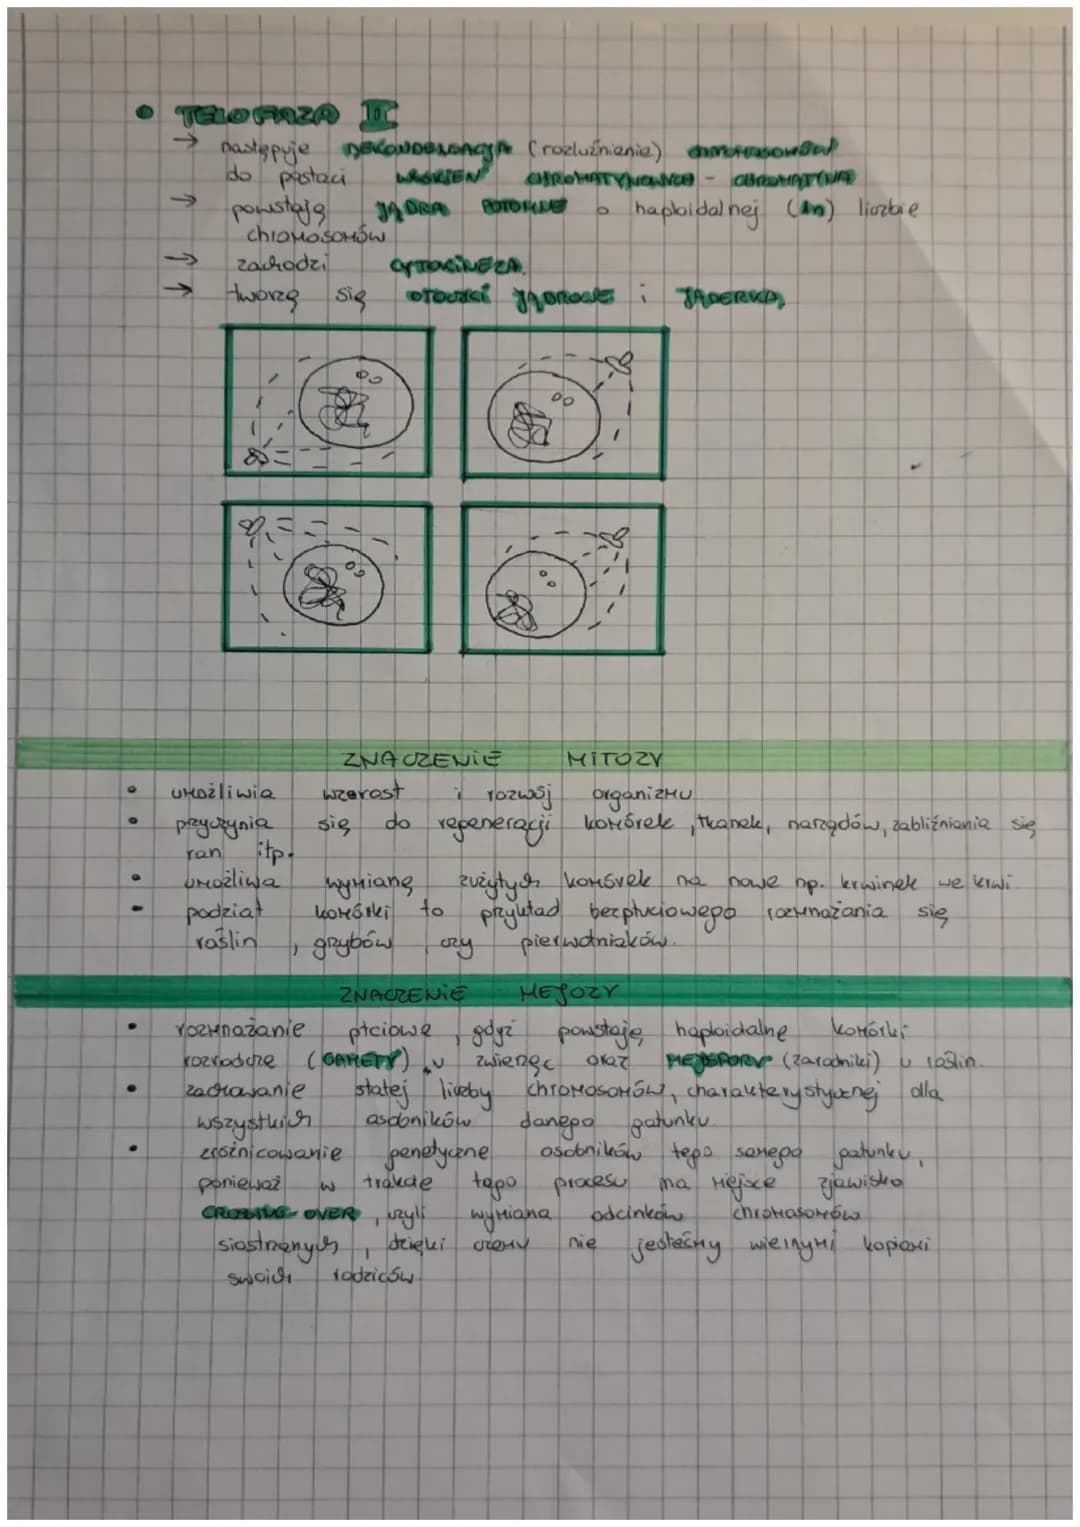 • TELOFAZA II
→ następuje DEKONDENSACJA (rozluźnienie) CHROMOSOMÓW
do postaci WŁÓKIEN CHROMATYNOWYCH - CHROMATYNA
→ powstają JĄDRA POTOMNE o haploidalnej (1n) liczbie
chromosomów
→ zachodzi CYTOKINEZA.
→ tworzą się OTOCZKI JĄDROWE i JĄDERKA,
ZNACZENIE MITOZY
• umożliwia wzrost i rozwój organizmu
• przyczynia się do regeneracji komórek, tkanek, narządów, zabliźniania się
ran itp.
• umożliwa wymianę zużytych komórek na nowe np. krwinek we krwi.
• podział komórki to przykład bezpłuciowego rozmnażania się
roślin, grzybów czy pierwotniaków.
ZNACZENIE MEJOZY
• rozmnażanie płciowe, gdyż powstają haploidalne komórki
rozrodcze (GAMETY) u zwierząc oraz MEJOSPORY (zarodniki) u roślin.
• zachowanie stałej liczby chromosomów, charakterystycznej dla
wszystkich osobników danego gatunku.
• zróżnicowanie genetyczne osobników tego samego gatunku,
ponieważ w trakcie tego procesu ma miejsce zjawisko
CROSSING-OVER, czyli wymiana odcinków chromosomów
siostrzanych, dzięki czemu nie jesteśmy wiernymi kopiami
swoich rodziców.